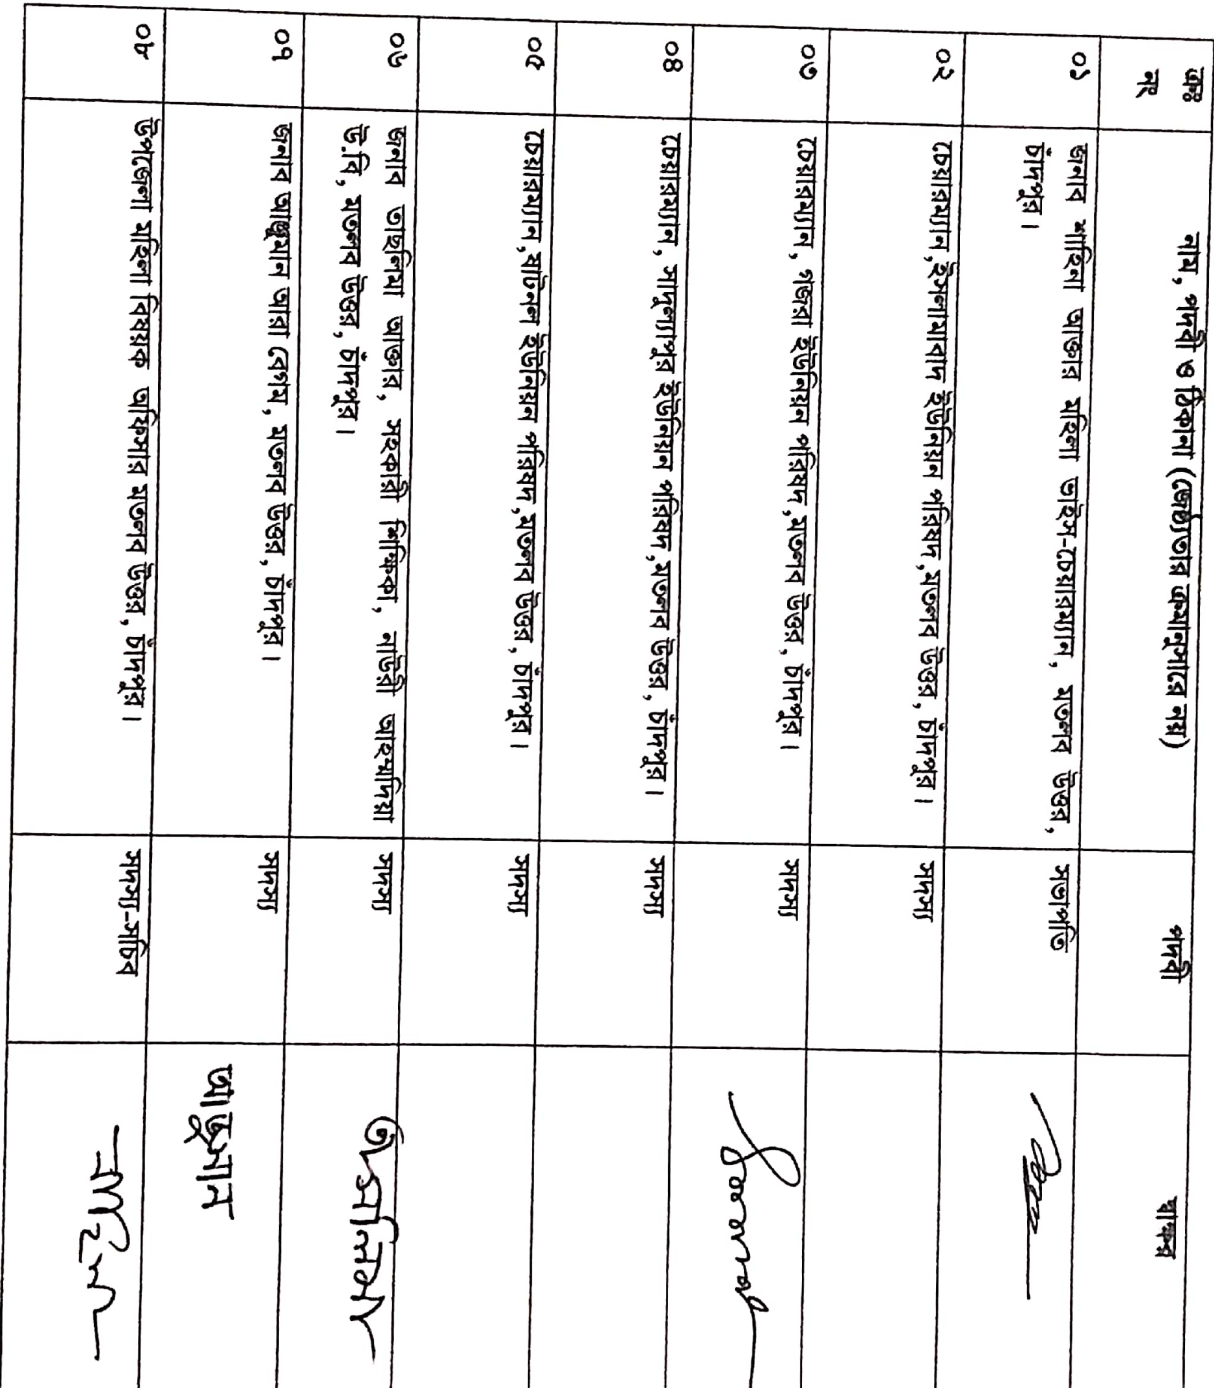 ক্রঃ নং
নাম, পদবী ও ঠিকানা (জেষ্ঠ্যতার ক্রমানুসারে নয়)
পদবী
স্বাক্ষর
০১
জনাব শাহিনা আক্তার মহিলা ভাইস-চেয়ারম্যান, মতলব উত্তর,
চাঁদপুর।
সভাপতি
০২
চেয়ারম্যান,ইসলামাবাদ ইউনিয়ন পরিষদ,মতলব উত্তর, চাঁদপুর।
সদস্য
০৩
চেয়ারম্যান, গজরা ইউনিয়ন পরিষদ,মতলব উত্তর, চাঁদপুর।
সদস্য
০৪
চেয়ারম্যান, সাদুল্যাপুর ইউনিয়ন পরিষদ,মতলব উত্তর, চাঁদপুর।
সদস্য
০৫
চেয়ারম্যান,ষাটনল ইউনিয়ন পরিষদ,মতলব উত্তর, চাঁদপুর।
সদস্য
০৬
জনাব তাছলিমা আক্তার, সহকারী শিক্ষিকা, নাউরী আহম্মদিয়া
উ.বি, মতলব উত্তর, চাঁদপুর।
সদস্য
০৭
জনাব আঞ্জুমান আরা বেগম, মতলব উত্তর, চাঁদপুর।
সদস্য
০৮
উপজেলা মহিলা বিষয়ক অফিসার মতলব উত্তর, চাঁদপুর।
সদস্য-সচিব